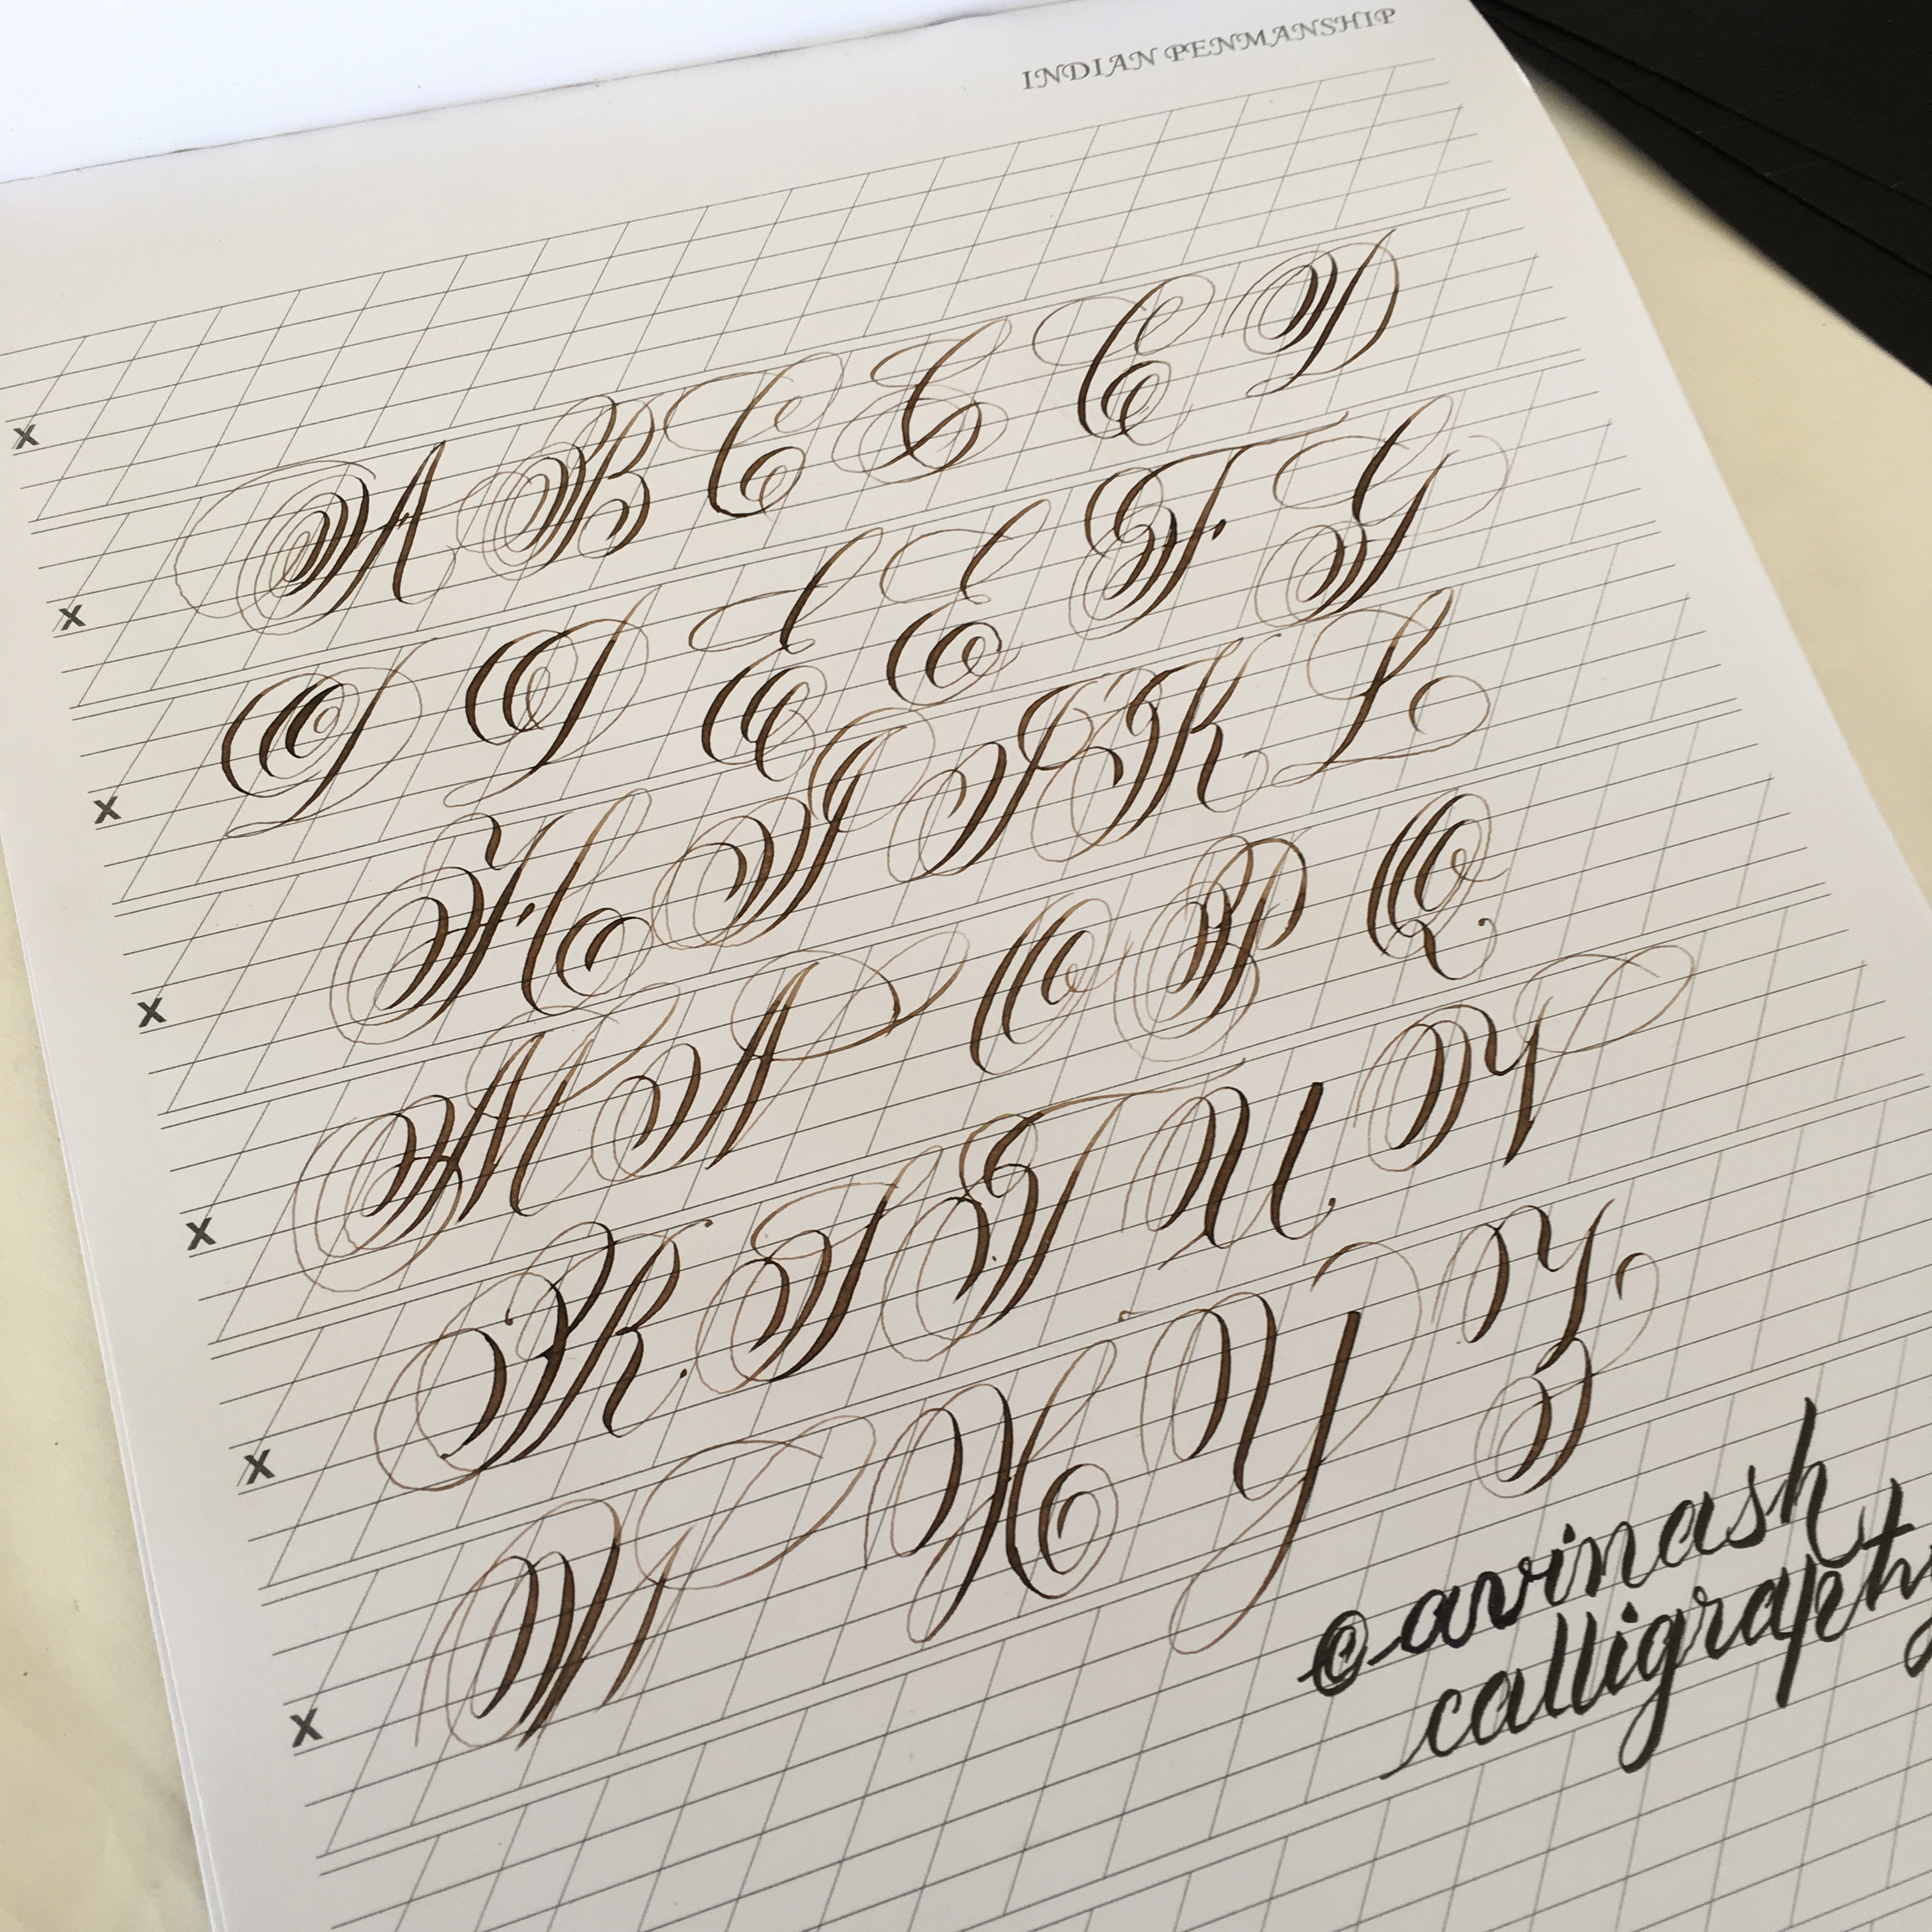 INDIAN PENMANSHIP
x
x A B C C C D
x D D E E F G
x H I J K L
x M N O P Q
x R S T U V
x W X Y Z
©avinash
calligraphy